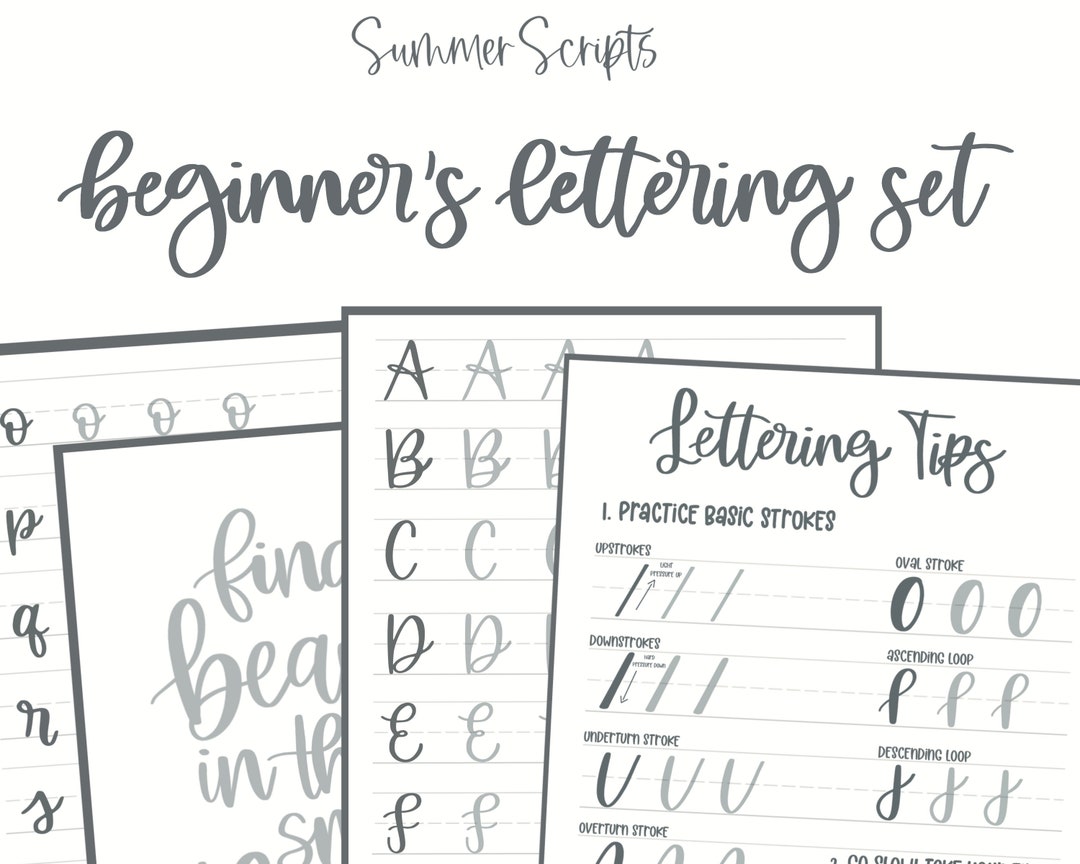 Summer Scripts
beginner's lettering set
o o o o
p
q
r
s
find
bea
in th
sm
A A A A
B B B
C C
D D
E E
F F
Lettering Tips
1. Practice Basic Strokes
Upstrokes
Light
Pressure Up
Downstrokes
Hard
Pressure Down
Underturn Stroke
Overturn Stroke
Oval Stroke
Ascending Loop
Descending Loop